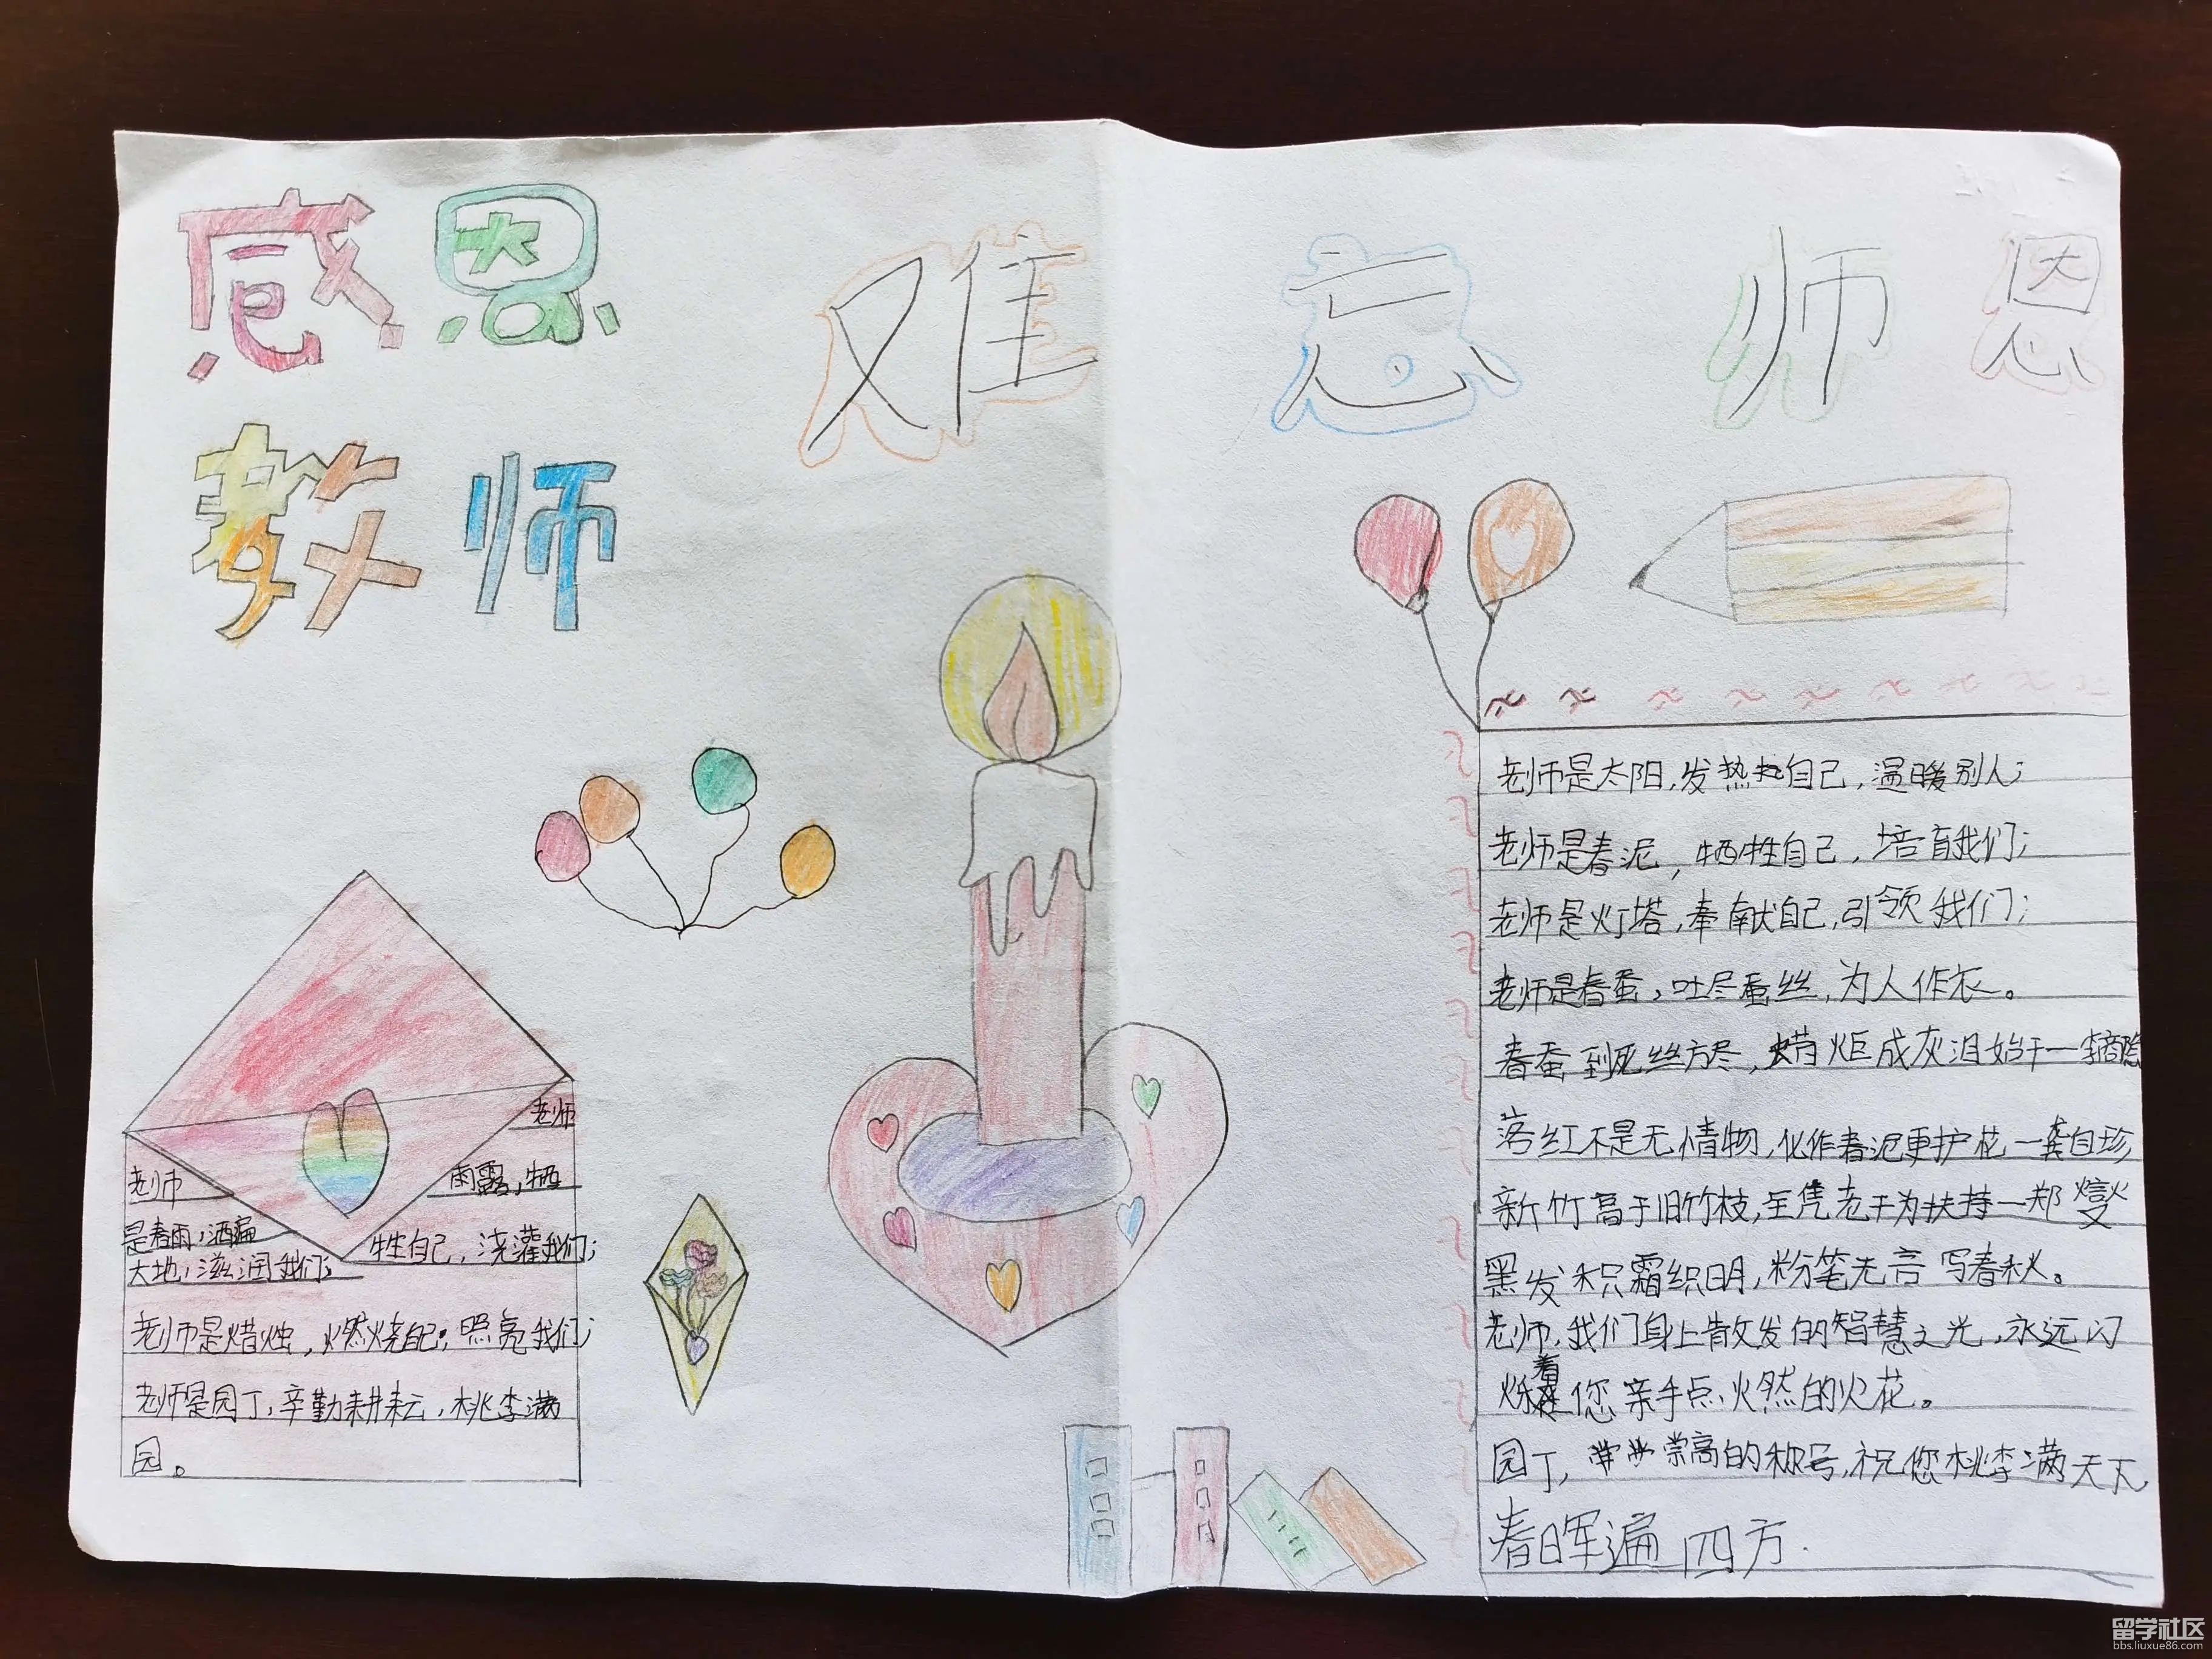 感恩
教师
难忘师恩
老师是太阳,发热自己,温暖别人;
老师是春泥,牺牲自己,培育我们;
老师是灯塔,奉献自己,引领我们;
老师是春蚕,吐尽蚕丝,为人作衣。
春蚕到死丝方尽,蜡炬成灰泪始干一李商隐
落红不是无情物,化作春泥更护花一龚自珍
新竹高于旧竹枝,全凭老干为扶持一郑燮
黑发积霜织日月,粉笔无言写春秋。
老师,我们身上散发的智慧之光,永远闪
烁着您亲手点燃的火花。
园丁,崇高的称号,祝您桃李满天下,
春晖遍四方.
老师
是春雨,洒遍
大地,滋润我们;
老师
雨露,牺
牲自己,浇灌我们;
老师是蜡烛,燃烧自己,照亮我们;
老师是园丁,辛勤耕耘,桃李满
园。
留学社区
bbs.liuxue86.com